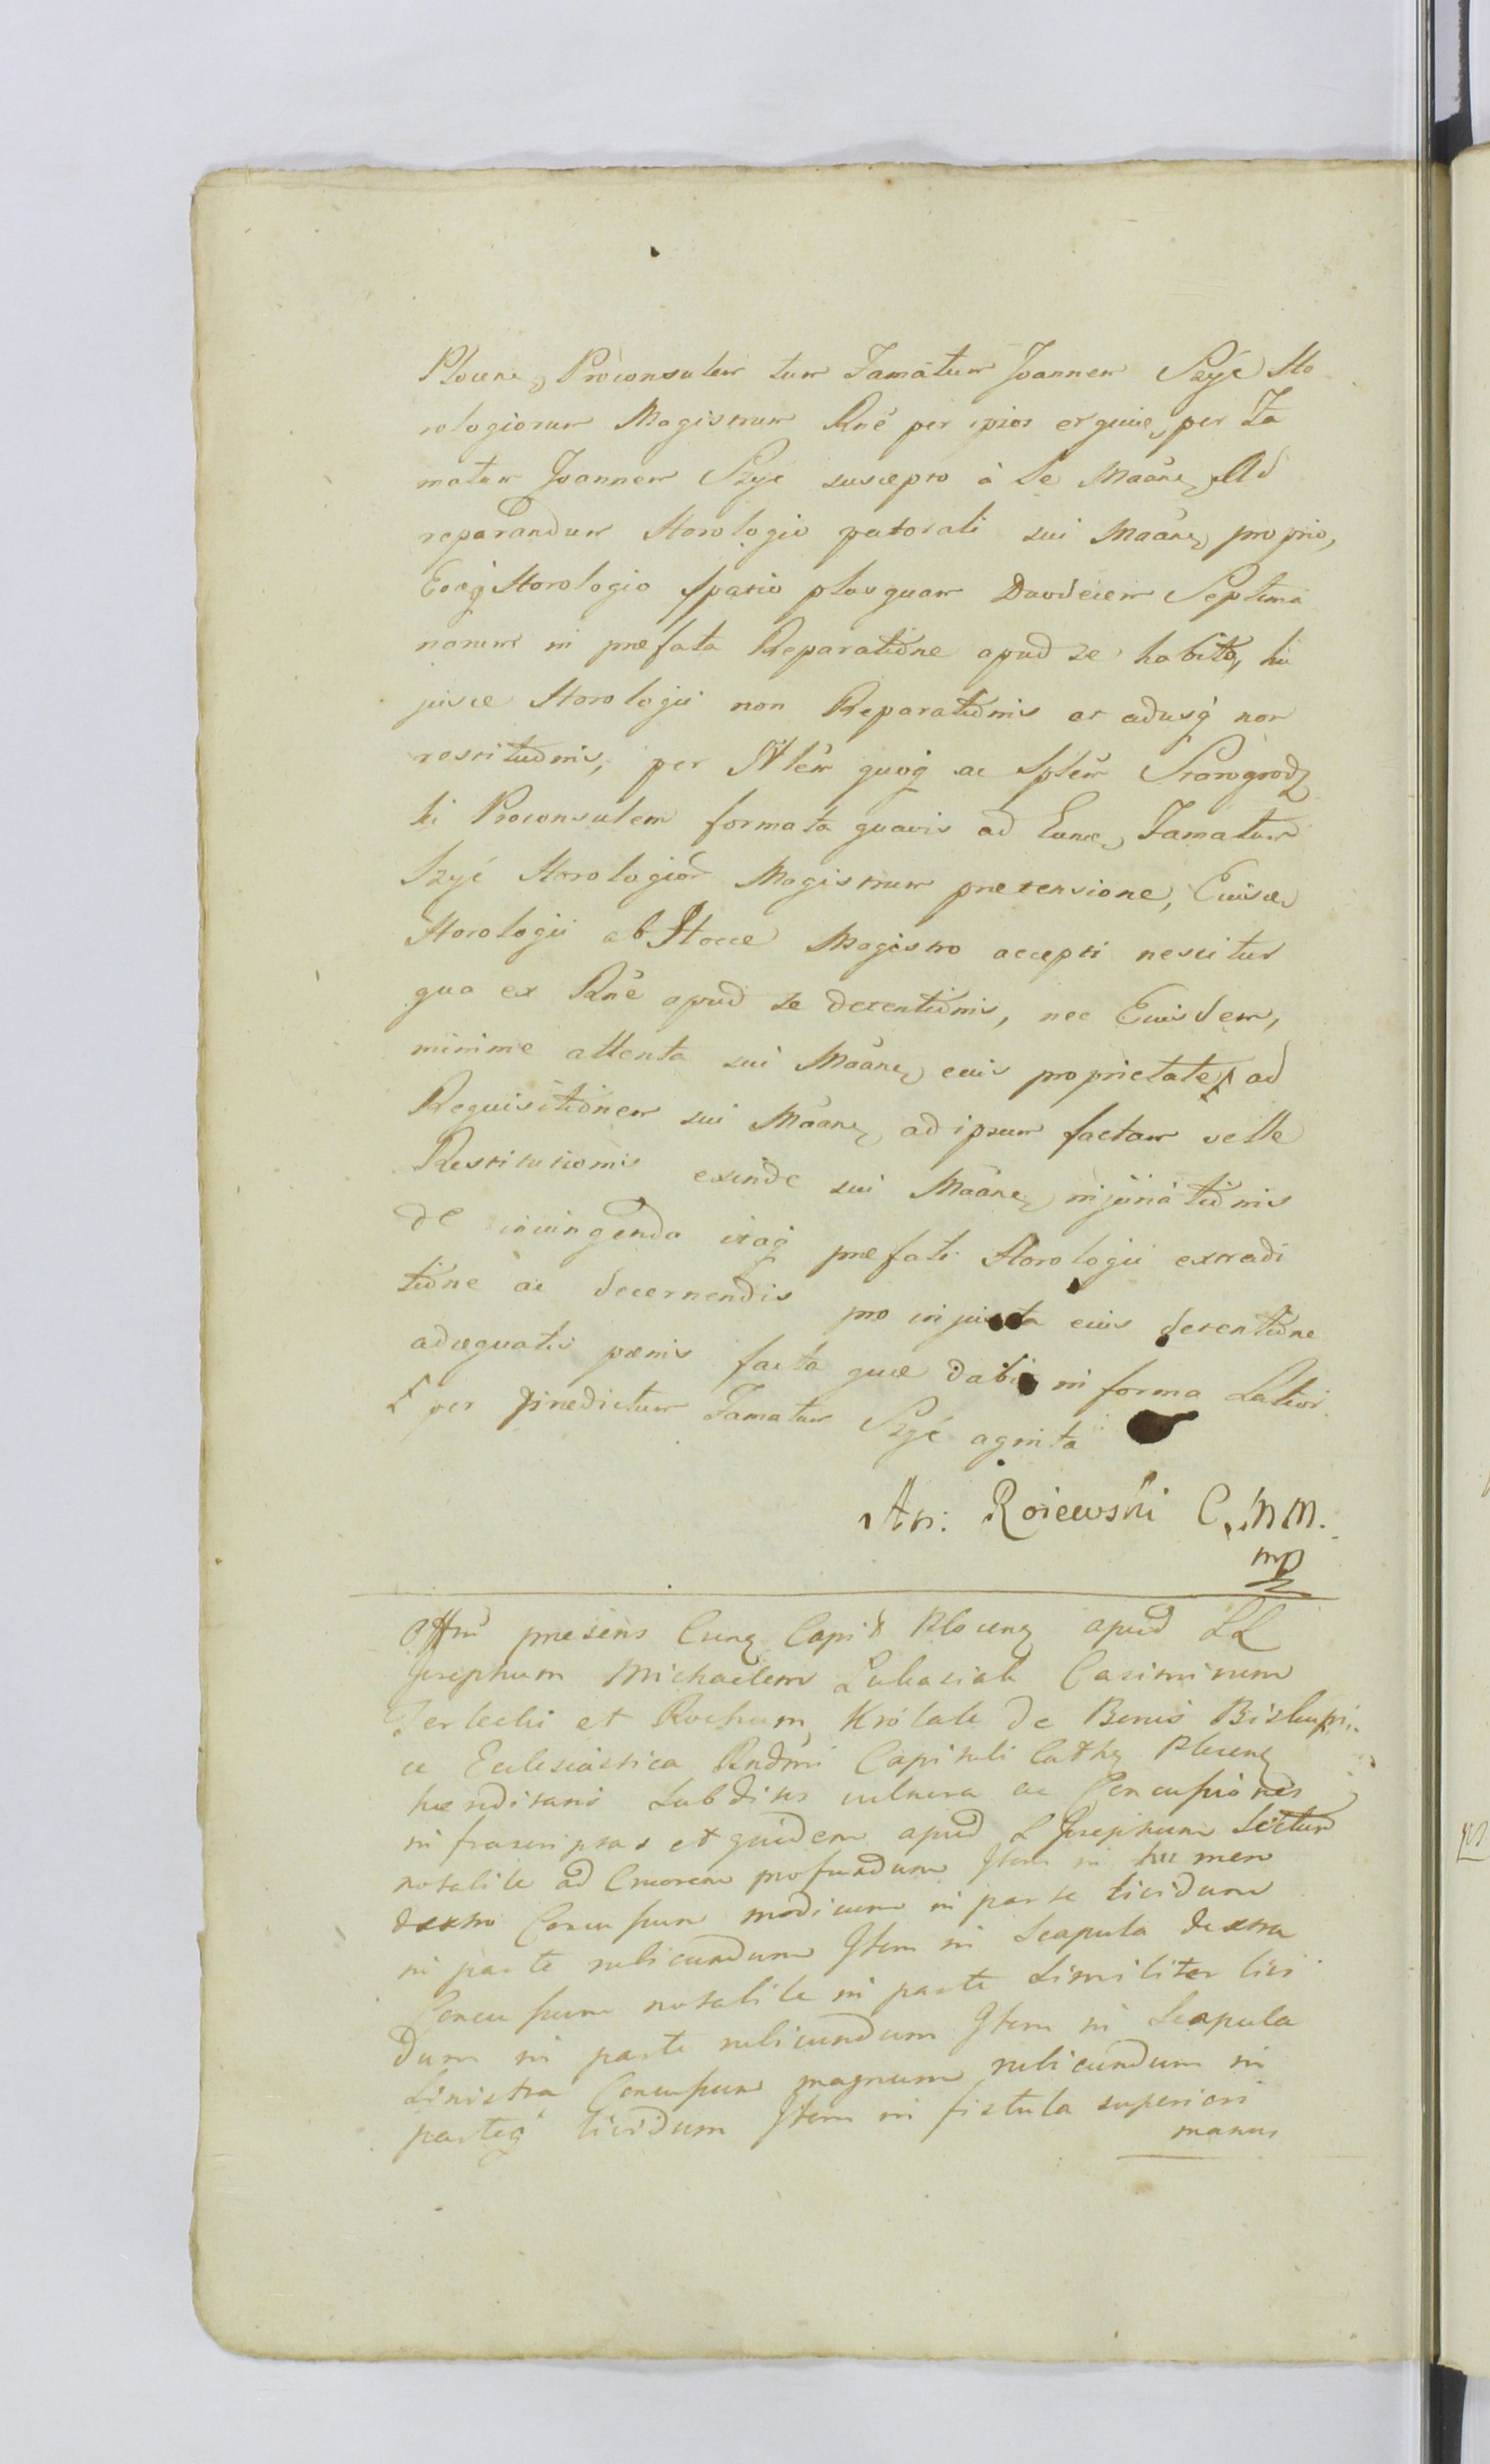 Plocens, Proconsulem tum Famatum Joannem Szyć Ho
rologiorum Magistrum Rnē per ipsos et quine, per Fa
matum Joannem Szyć suscepto à Se Maāne, Ad
reparandum Horologio pectorali sui Maāne, proprio,
Eoq̨ Horologio spatio plusquam Duodecem Septima
narum in præfata Reparatiōne apud se habito, hu
jusce Horologii non Reparatiōnis ac adusq̨ non
restitutiōnis, per Nlēm quoq̨ ac Spblēm Starogrodz
ki Proconsulem formata quavis ad Eunce, Famatum
Szyć Horologiōr Magistrum prætensione, Eiusce
Horologii ab Hocce Magistro accepti nescitur
qua ex Rnē apud se detentiōnis, nec Eiusdem,
minime attenta sui Maāne, eius proprietate, ad
Requisitiōnem sui Maāne, ad ipsum factam velle
Restitutionis exinde sui Maāne, injuriatiōnis
de iniungenda itaq̨ præfati Horologii extradi
tiōne ac decernendis pro injusta eius detentiōne
adæquatis pœnis facta quæ dabit in forma Latiori
per prædictum Famatum Szyć agnita
An: Roiewski C. M M.
mp
Offm̄ præsens Cunq Capit Plocens apud LL
Josephum Michaelem Lukasiak Casimirum
Terlecki et Rochum Królak de Bonis Biskupi..
ce Ecclesiastica Rndm̄i Capituli Cathis Plocens
hæreditaris Subditis vulnera ac Concussiones
infrascriptas et quidem apud L Josephum Sectum
notabile ad Cruorem profundum Item in humero
dextro Concussum modicum in parte lividum
in parte rubicundum Item in Scapula dextra
Concussum notabile in parte Similiter livi
dum in parte rubicundum Item in Scapula
Sinistra Concussum magnum rubicundum in
parteq̨ lividum Item in fistula superiori
manus